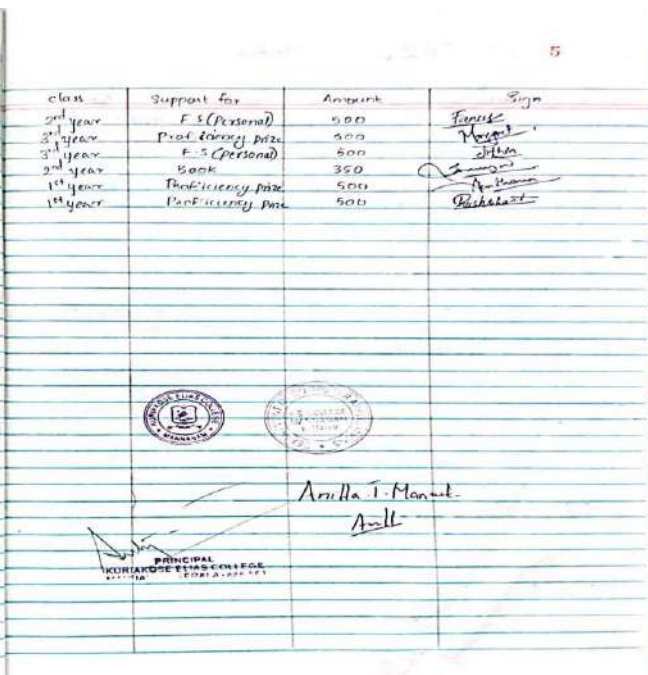 5
class Support for Amount Sign
2nd year F S (Personal) 500 Francis
3rd year Proficiency prize 500
3rd year F.S (personal) 500
2nd year Book 350
1st year Proficiency prize 500
1st year Proficiency prize 500
KURIAKOSE ELIAS COLLEGE
MANNANAM
Anilla T. Manuel
PRINCIPAL
KURIAKOSE ELIAS COLLEGE